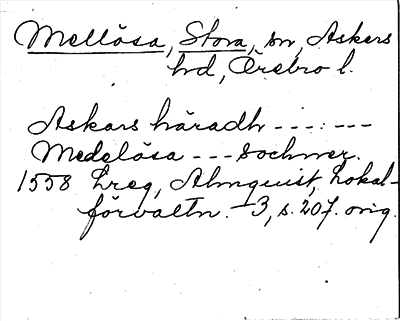 Mellösa, Stora, sn, Askers
hd, Örebro l.
Askars häradh ---:---
Medelösa --- Sochner.
1558 Lreg, Almquist, Lokal-
förvaltn. 3, s. 207. orig.